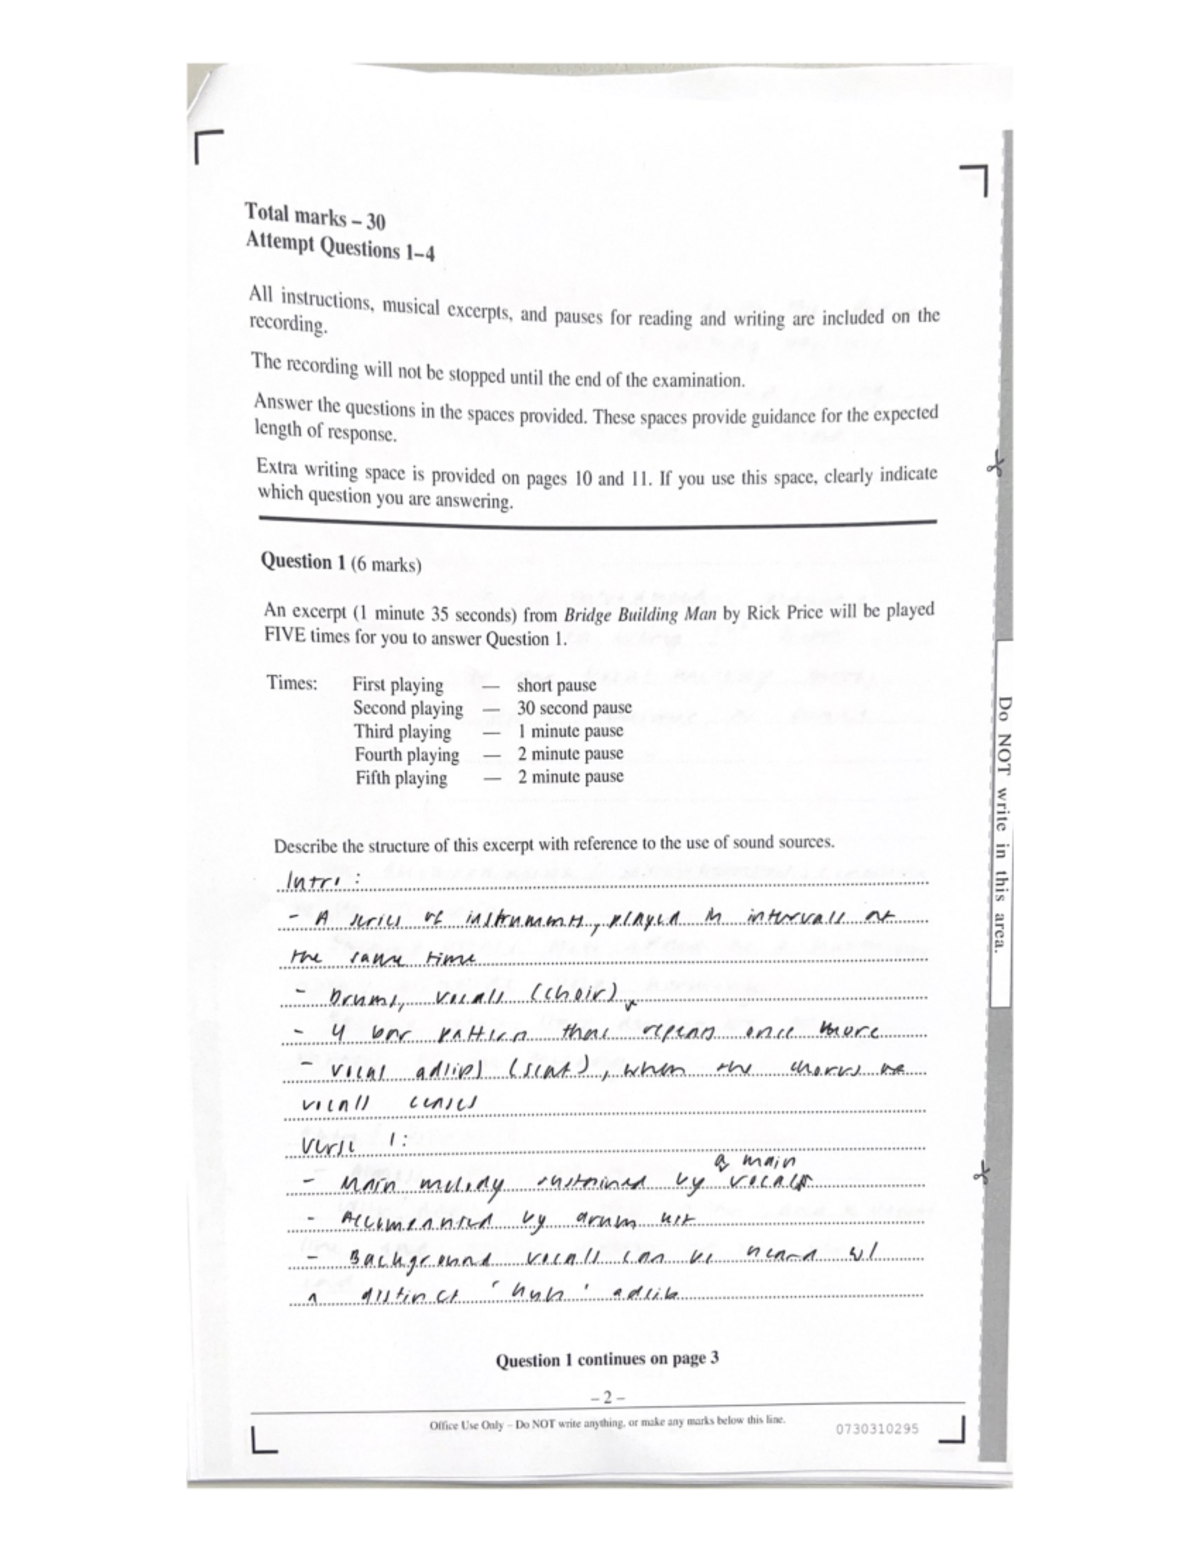 Total marks – 30
Attempt Questions 1–4
All instructions, musical excerpts, and pauses for reading and writing are included on the
recording.
The recording will not be stopped until the end of the examination.
Answer the questions in the spaces provided. These spaces provide guidance for the expected
length of response.
Extra writing space is provided on pages 10 and 11. If you use this space, clearly indicate
which question you are answering.
Question 1 (6 marks)
An excerpt (1 minute 35 seconds) from Bridge Building Man by Rick Price will be played
FIVE times for you to answer Question 1.
Times: First playing — short pause
Second playing — 30 second pause
Third playing — 1 minute pause
Fourth playing — 2 minute pause
Fifth playing — 2 minute pause
Describe the structure of this excerpt with reference to the use of sound sources.
Intro :
- A series of instruments, played in intervals at
the same time
- Drums, vocals (choir)
- 4 bar pattern that repeats once more
- vocal adlibs (scat), when the
vocals
Verse 1:
a main
- Main melody sustained by vocals
- Accompanied by drum kit
- Background vocals can be heard w/
a distinct 'huh' adlib
Question 1 continues on page 3
– 2 –
Office Use Only – Do NOT write anything, or make any marks below this line.
0730310295
Do NOT write in this area.